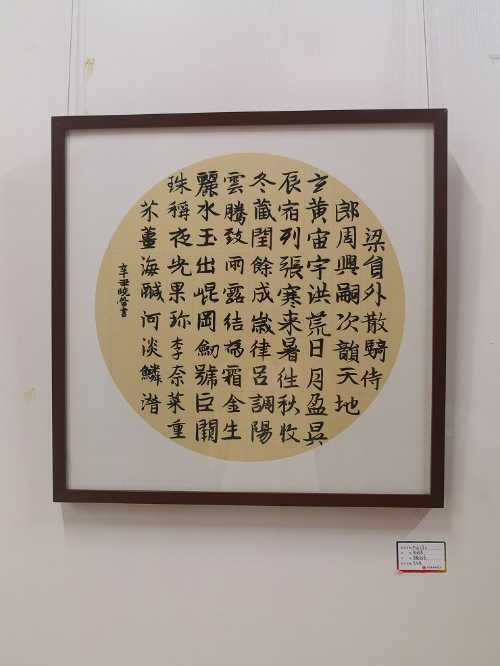 梁員外散騎侍
郎周興嗣次韻天地
玄黄宙宇洪荒日月盈昃
辰宿列張寒来暑往秋收
冬藏閏餘成歲律呂調陽
雲騰致雨露結為霜金生
麗水玉出崐岡劒號巨闕
珠稱夜光果珍李奈菜重
芥薑海醎河淡鱗潛
曉書